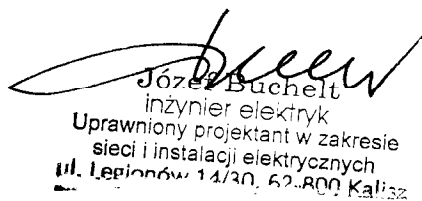 Józef Buchelt
inżynier elektryk
Uprawniony projektant w zakresie
sieci i instalacji elektrycznych
ul. Legionów 14/30, 62-800 Kalisz